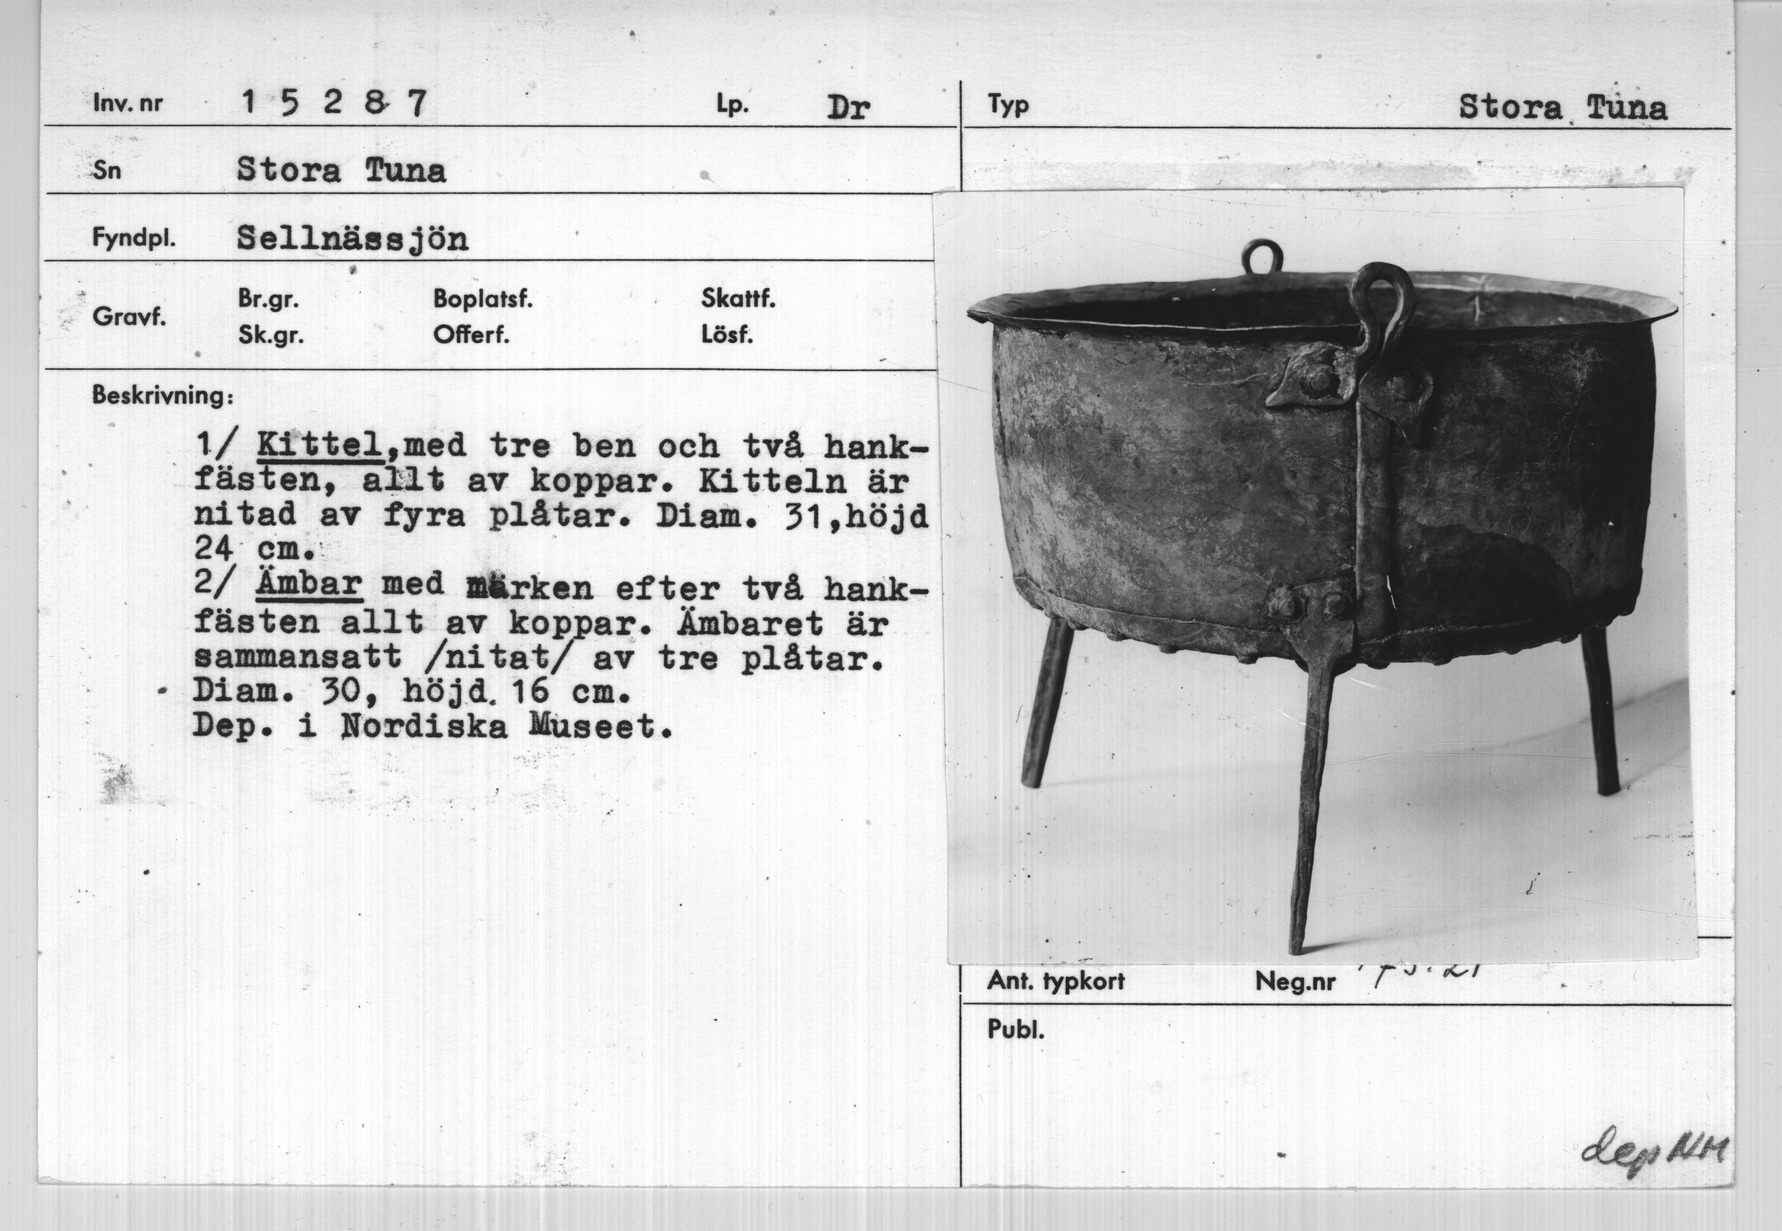 Inv. nr 1 5 2 8 7 Lp. Dr
Typ Stora Tuna
Sn Stora Tuna
Fyndpl. Sellnässjön
Gravf. Br.gr. Boplatsf. Skattf.
Sk.gr. Offerf. Lösf.
Beskrivning:
1/ Kittel,med tre ben och två hank-
fästen, allt av koppar. Kitteln är
nitad av fyra plåtar. Diam. 31,höjd
24 cm.
2/ Ämbar med märken efter två hank-
fästen allt av koppar. Ämbaret är
sammansatt /nitat/ av tre plåtar.
Diam. 30, höjd. 16 cm.
Dep. i Nordiska Museet.
Ant. typkort Neg.nr
Publ.
dep NM